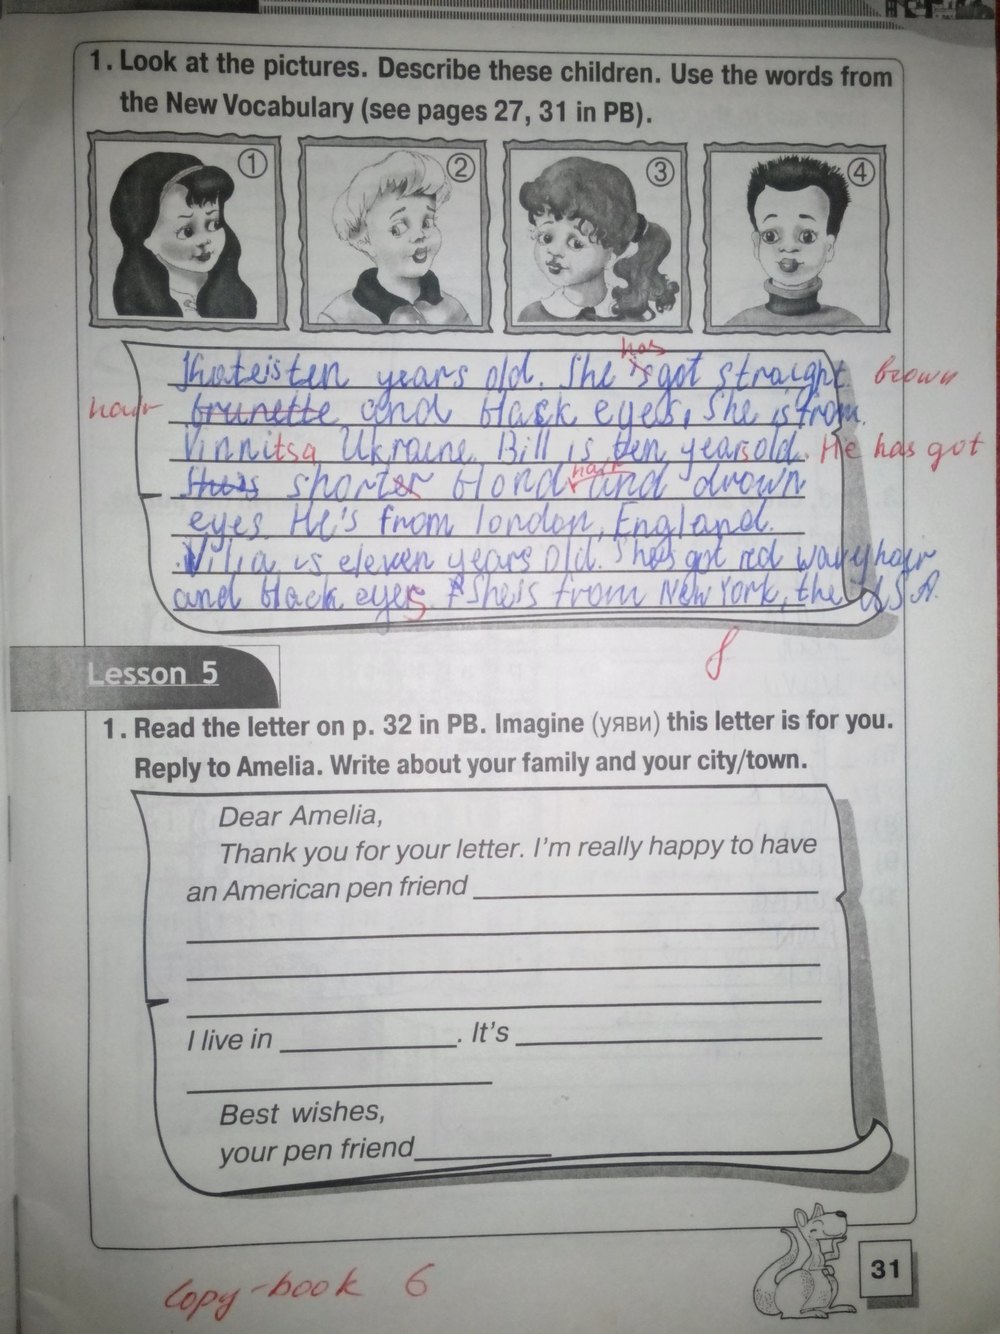 1. Look at the pictures. Describe these children. Use the words from
the New Vocabulary (see pages 27, 31 in PB).
1
2
3
4
has
Kate is ten years old. She is got straight brown
hair brunette and black eyes, She is from
Vinnitsa Ukraine. Bill is ten years old. He has got
hair
She is shorter blond and drown
eyes. He's from london, England.
is eleven years old. Shas got red wavy hair
and black eyes. She is from New York, the USA.
8
Lesson 5
1. Read the letter on p. 32 in PB. Imagine (уяви) this letter is for you.
Reply to Amelia. Write about your family and your city/town.
Dear Amelia,
Thank you for your letter. I'm really happy to have
an American pen friend
I live in . It's
Best wishes,
your pen friend
31
Copy-book 6